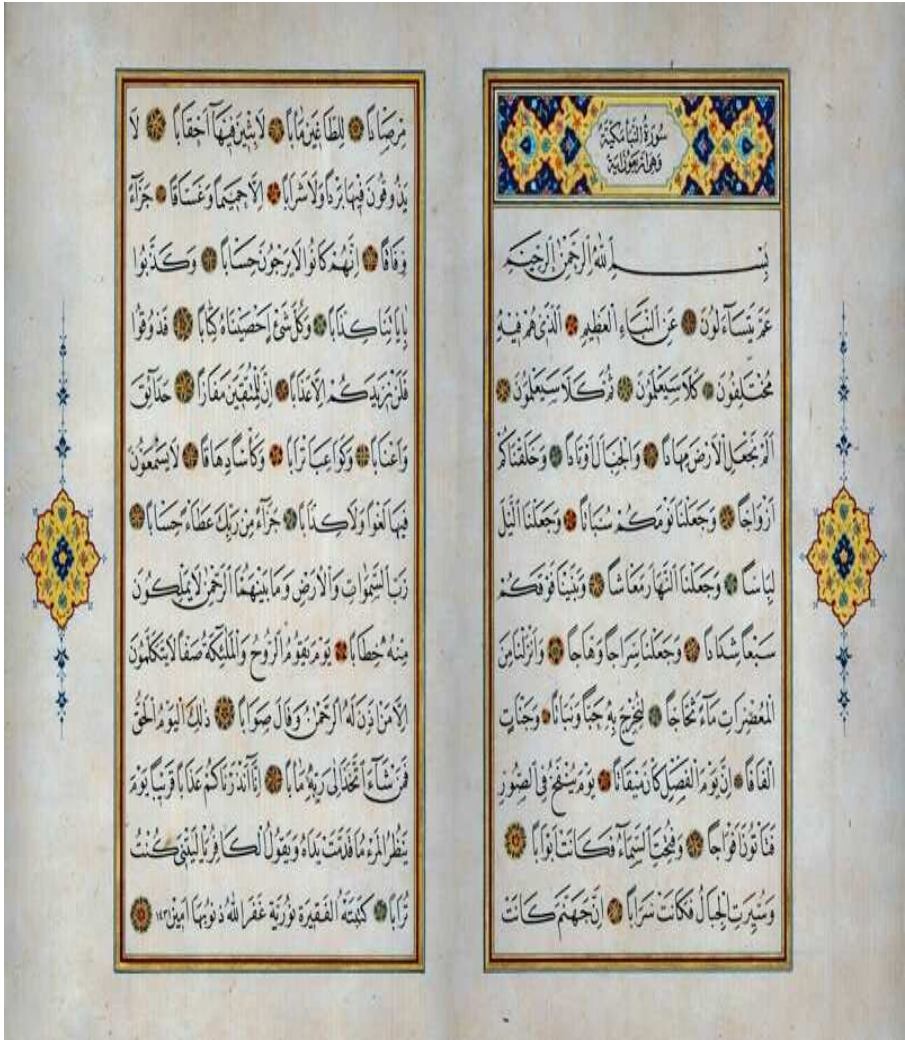 سُورَةُ النَّبَأِ مَكِّيَّةٌ
وَهِيَ اَرْبَعُونَ اٰيَةً
بِسْمِ اللّٰهِ الرَّحْمٰنِ الرَّحِيمِ
عَمَّ يَتَسَآءَلُونَ ۝ عَنِ النَّبَاءِ الْعَظِيمِ ۝ اَلَّذِى هُمْ فِيهِ
مُخْتَلِفُونَ ۝ كَلَّا سَيَعْلَمُونَ ۝ ثُمَّ كَلَّا سَيَعْلَمُونَ ۝
اَلَمْ نَجْعَلِ الْاَرْضَ مِهَادًا ۝ وَالْجِبَالَ اَوْتَادًا ۝ وَخَلَقْنَاكُمْ
اَزْوَاجًا ۝ وَجَعَلْنَا نَوْمَكُمْ سُبَاتًا ۝ وَجَعَلْنَا الَّيْلَ
لِبَاسًا ۝ وَجَعَلْنَا النَّهَارَ مَعَاشًا ۝ وَبَنَيْنَا فَوْقَكُمْ
سَبْعًا شِدَادًا ۝ وَجَعَلْنَا سِرَاجًا وَهَّاجًا ۝ وَاَنْزَلْنَا مِنَ
الْمُعْصِرَاتِ مَآءً ثَجَّاجًا ۝ لِنُخْرِجَ بِهِ حَبًّا وَنَبَاتًا ۝ وَجَنَّاتٍ
اَلْفَافًا ۝ اِنَّ يَوْمَ الْفَصْلِ كَانَ مِيقَاتًا ۝ يَوْمَ يُنْفَخُ فِى الصُّورِ
فَتَاْتُونَ اَفْوَاجًا ۝ وَفُتِحَتِ السَّمَآءُ فَكَانَتْ اَبْوَابًا ۝
وَسُيِّرَتِ الْجِبَالُ فَكَانَتْ سَرَابًا ۝ اِنَّ جَهَنَّمَ كَانَتْ
مِرْصَادًا ۝ لِلطَّاغِينَ مَاٰبًا ۝ لَابِثِينَ فِيهَآ اَحْقَابًا ۝ لَا
يَذُوقُونَ فِيهَا بَرْدًا وَلَا شَرَابًا ۝ اِلَّا حَمِيمًا وَغَسَّاقًا ۝ جَزَآءً
وِفَاقًا ۝ اِنَّهُمْ كَانُوا لَا يَرْجُونَ حِسَابًا ۝ وَكَذَّبُوا
بِاٰيَاتِنَا كِذَّابًا ۝ وَكُلَّ شَىْءٍ اَحْصَيْنَاهُ كِتَابًا ۝ فَذُوقُوا
فَلَنْ نَزِيدَكُمْ اِلَّا عَذَابًا ۝ اِنَّ لِلْمُتَّقِينَ مَفَازًا ۝ حَدَآئِقَ
وَاَعْنَابًا ۝ وَكَوَاعِبَ اَتْرَابًا ۝ وَكَاْسًا دِهَاقًا ۝ لَا يَسْمَعُونَ
فِيهَا لَغْوًا وَلَا كِذَّابًا ۝ جَزَآءً مِنْ رَبِّكَ عَطَآءً حِسَابًا ۝
رَبِّ السَّمٰوَاتِ وَالْاَرْضِ وَمَا بَيْنَهُمَا الرَّحْمٰنِ لَا يَمْلِكُونَ
مِنْهُ خِطَابًا ۝ يَوْمَ يَقُومُ الرُّوحُ وَالْمَلٰٓئِكَةُ صَفًّا لَا يَتَكَلَّمُونَ
اِلَّا مَنْ اَذِنَ لَهُ الرَّحْمٰنُ وَقَالَ صَوَابًا ۝ ذٰلِكَ الْيَوْمُ الْحَقُّ
فَمَنْ شَآءَ اتَّخَذَ اِلٰى رَبِّهِ مَاٰبًا ۝ اِنَّآ اَنْذَرْنَاكُمْ عَذَابًا قَرِيبًا يَوْمَ
يَنْظُرُ الْمَرْءُ مَا قَدَّمَتْ يَدَاهُ وَيَقُولُ الْكَافِرُ يَا لَيْتَنِى كُنْتُ
تُرَابًا ۝ كَتَبَتْهُ الْفَقِيرَة نُورِيَّة غَفَرَ اللّٰهُ ذُنُوبَهَا اٰمِين ١٤٣١ ۝